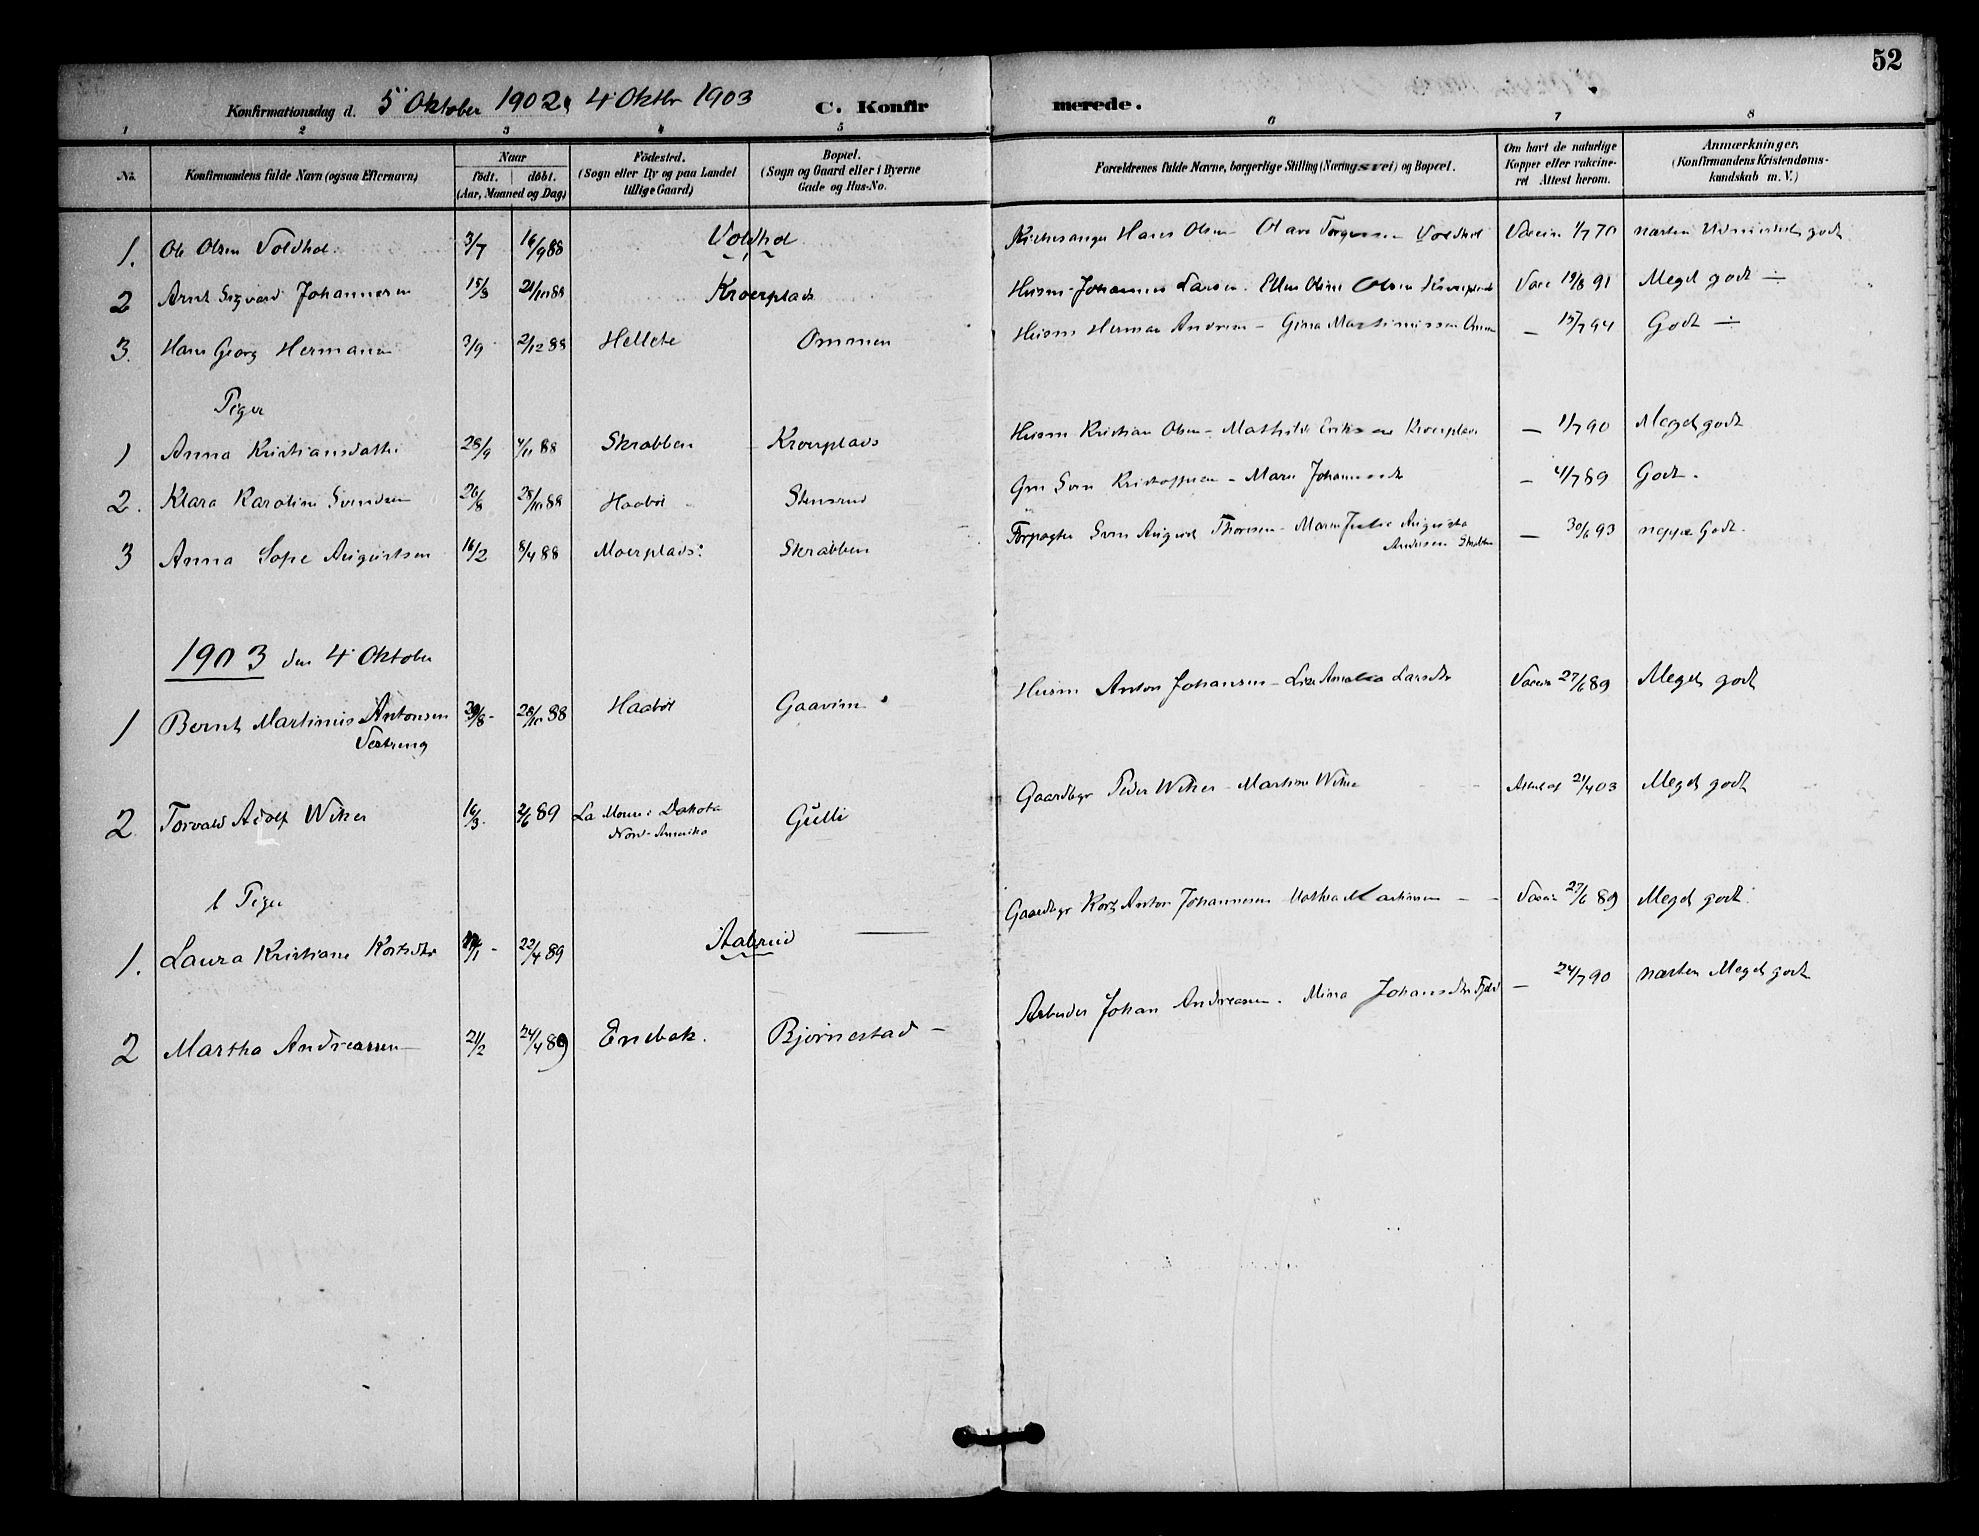 52
Konfirmationsdag d. 5 Oktober 1902, 4 Oktbr 1903 C. Konfirmerede.
1 2 3 4 5 6 7 8
No. Konfirmandens fulde Navn (ogsaa Efternavn) Naar født. døbt. (Aar, Maaned og Dag) Fødested. (Sogn eller By og paa Landet tillige Gaard) Bopæl. (Sogn og Gaard eller i Byerne Gade og Hus-No. Forældrenes fulde Navne, borgerlige Stilling (Næringsvei) og Bopæl. Om havt de naturlige Kopper eller vakcineret Attest herom. Anmærkninger. (Konfirmandens Kristendomskundskab m. V.)
1. Ole Olsen Voldhol 3/7 16/9 88 Voldhol Kirkesanger Hans Olsen - Olava Voldhol Vaccin 1/7 70 næsten godt
2 Arnt Sigvard Johannesen 15/8 21/10 88 Kroerplads Husm Johannes Larsen. Ellen Oline Olsen Vacc 19/8 91 Meget godt ÷
3. Hans Georg Hermansen 3/9 2/12 88 Hellete Ommen Husm Herman Andersen - Gina Martinussen — 15/7 94 Godt ÷
Piger
1 Anna Kristiansdatter 28/9 4/11 88 Skrabben Kroerplads Husm Kristian Olsen - Mathilde Eriksen Kroerplads — 1/7 90 Meget godt
2. Klara Karoline Svendsen 26/8 28/10 88 Haabøl Stensrud Gm Sven Kristoffersen - Maren Johannesdtr — 4/7 89 Godt.
3 Anna Sofie Augustsen 16/2 8/4 88 Moerplads Skrabben Forpagter Sven August Thoresen - Maren Julie Augusta — 30/6 93 neppe Godt.
Andersen Skrabben
1903 den 4 Oktober
1 Bernt Martinius Antonsen 8 28/10 88 Haabøl Gaavim Husm Anton Johansen - Lise Amalia Larsdtr Vaccin 27/6 89 Meget godt
Vestreng
2 Torvald Adolf Wiker 16/3 2/6 89 La Moure Dakota Gulli Gaardbgr Peder Wiker - Martine Wiker Attest af 21/4 03 Meget godt
Nord-Amerika
b Piger
1. Laura Kristiane Kortsdtr 1 22/4 89 Aabrud — Gaardbgr Kort Anton Johannesen Mathea Martinsen Vaccin 27/6 89 Meget godt.
2 Martha Andreassen 21/2 24/4 89 Enebak. Bjørnestad Arbeider Johan Andreasen. Mina Johansdtr — 24/7 90 næsten Meget godt